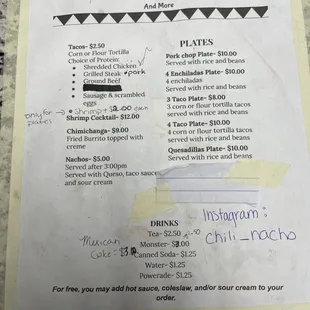 And More
Tacos- $2.50
Corn or Flour Tortilla
Choice of Protein:
Shredded Chicken
Grilled Steak *pork
Ground Beef
Sausage & scrambled
eggs
only for → Shrimp + $2.00 each
plates
Shrimp Cocktail- $12.00
Chimichanga- $9.00
Fried Burrito topped with
creme
Nachos- $5.00
Served after 3:00pm
Served with Queso, taco sauce,
and sour cream
PLATES
Pork chop Plate- $10.00
Served with rice and beans
4 Enchiladas Plate- $10.00
4 enchiladas
Served with rice and beans
3 Taco Plate- $8.00
3 corn or flour tortilla tacos
Served with rice and beans
4 Taco Plate- $10.00
4 corn or flour tortilla tacos
Served with rice and beans
Quesadillas Plate- $10.00
Served with rice and beans
Instagram:
chili_nacho
DRINKS
Tea- $2.50
Monster- $3.00
Mexican
Coke = $3
Canned Soda- $1.25
Water- $1.25
Powerade- $1.25
For free, you may add hot sauce, coleslaw, and/or sour cream to your
order.